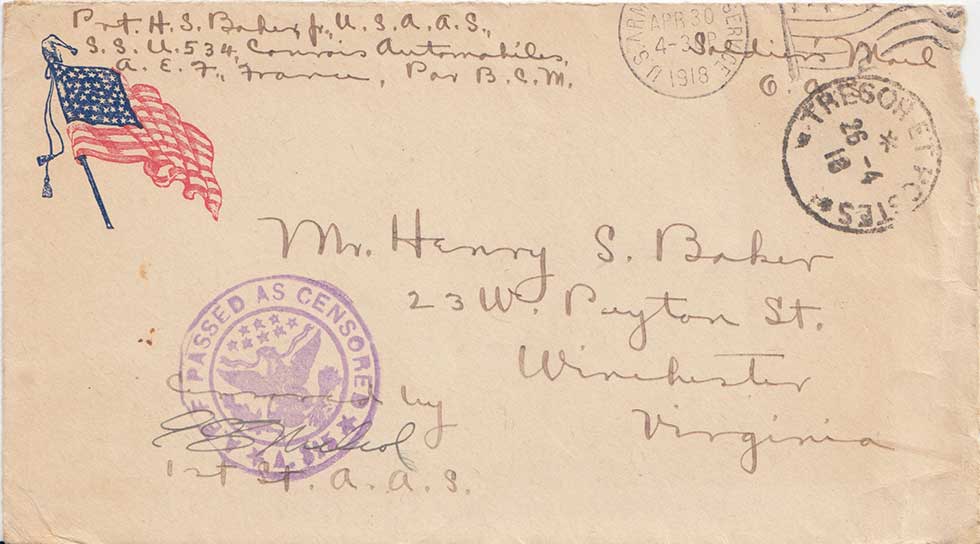 Pvt. H. S. Baker, Jr., U. S. A. A. S.,
S. S. U. 534, Convois Automobiles,
A. E. F., France, Par B. C. M.
U.S. ARMY SERVICE
APR 30
4-30P
1918
Soldier's Mail
TRESOR ET POSTES
26-4
18
Mr. Henry S. Baker
23 W. Peyton St.
Winchester
Virginia
PASSED AS CENSORED
Censored by
1st Lt. A. A. S.